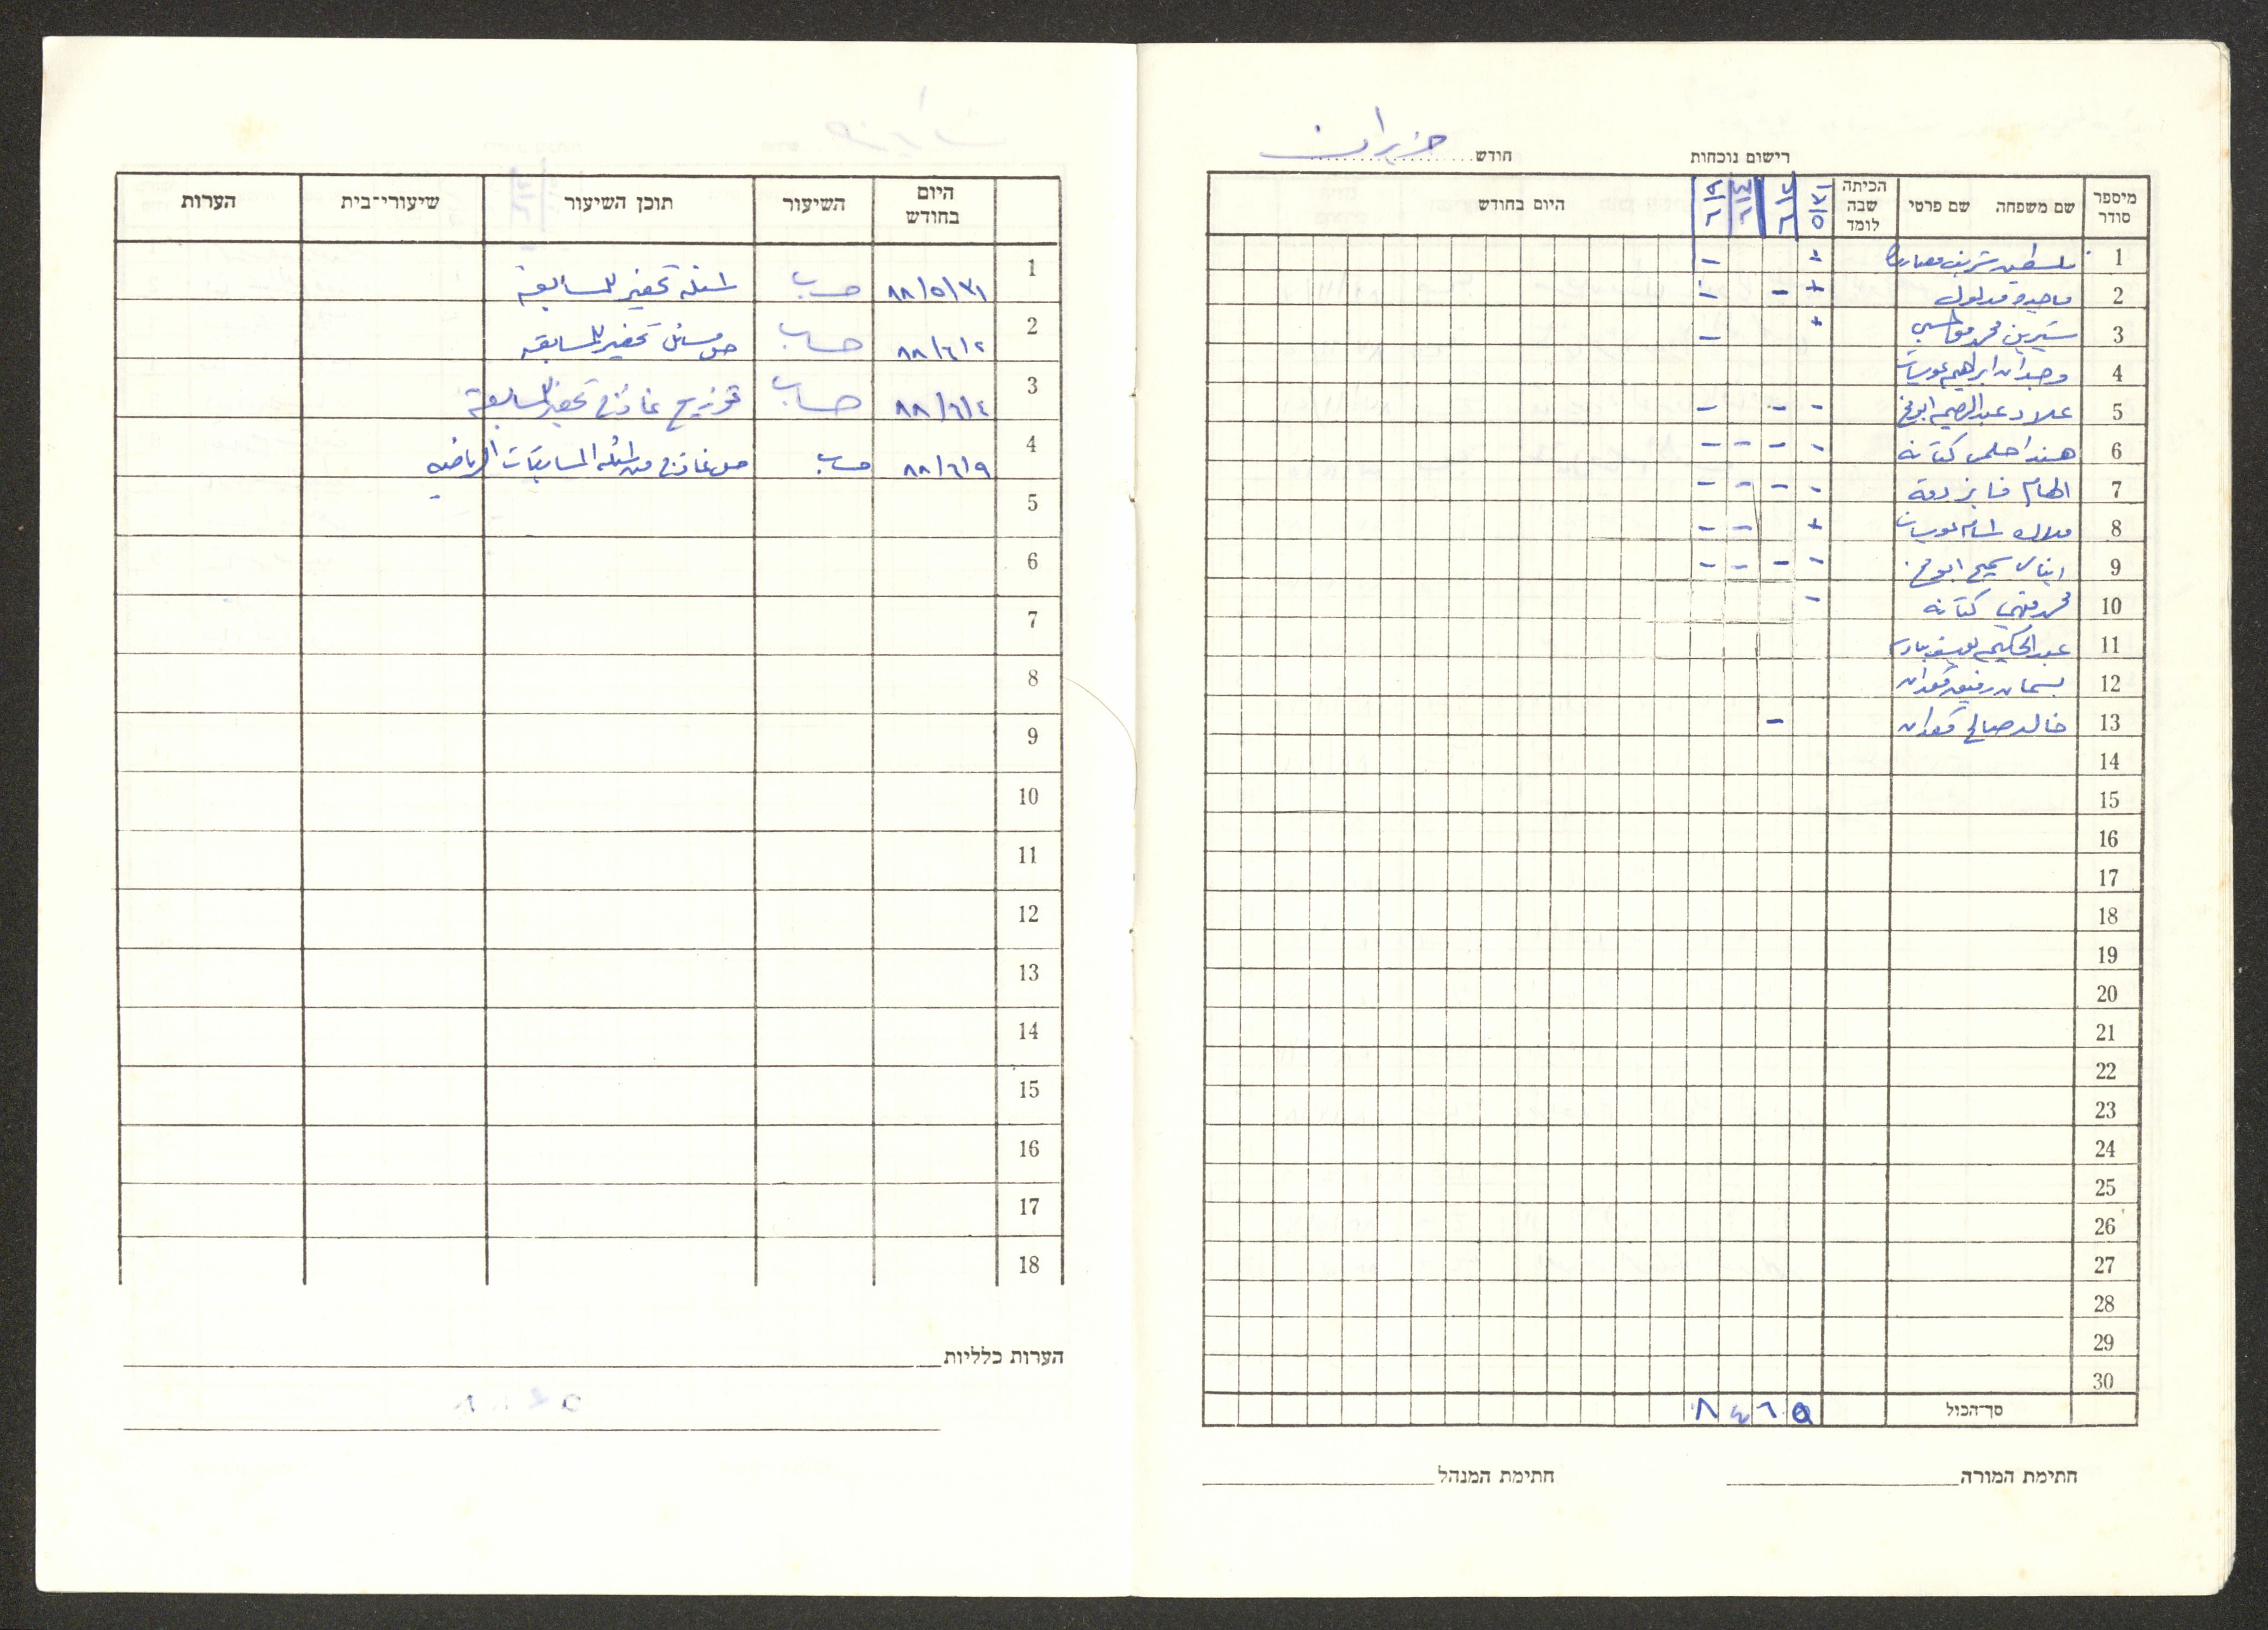 רישום נוכחות חודש حزيران
מיספר סודר שם משפחה שם פרטי הכיתה שבה לומד ٥/٣١ ٦/٢ ٦/٤ ٦/٩ היום בחודש
1 فلسطين شريف + –
2 ماجد + – –
3 شيرين محمد مواسي + –
4 وجدان ابراهيم عويسات
5 علاء عبد الرحيم ابو مخ – – –
6 هند احلمي كتانه – – – –
7 الهام فايز دقة – – – –
8 ملاك بسام عويسات + – –
9 ايناس سميح ابو مخ – – – –
10 محمد فتحي كتانه –
11 عبد الحكيم يوسف
12 بسمان رفيق قعدان
13 خالد صالح قعدان –
14
15
16
17
18
19
20
21
22
23
24
25
26
27
28
29
30
סך־הכול ٥ ٦ ٤ ٨
חתימת המורה חתימת המנהל
היום בחודש השיעור תוכן השיעור שיעורי־בית הערות
1 ٨٨/٥/٣١ حساب اسئلة تحضير للمسابقة
2 ٨٨/٦/٢ حساب حل مسائل تحضير للمسابقة
3 ٨٨/٦/٤ حساب توزيع نماذج تحضير للمسابقة
4 ٨٨/٦/٩ حساب حل نماذج من اسئلة المسابقات الرياضية
5
6
7
8
9
10
11
12
13
14
15
16
17
18
הערות כלליות